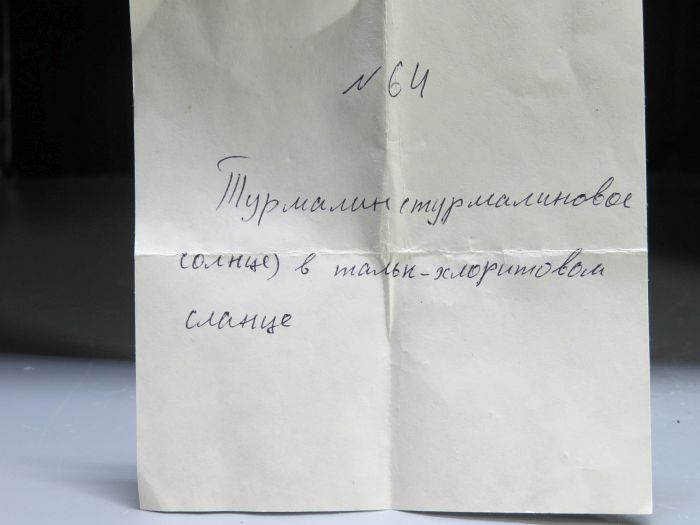 N 64
Турмалин (турмалиновое
солнце) в тальк-хлоритовом
сланце